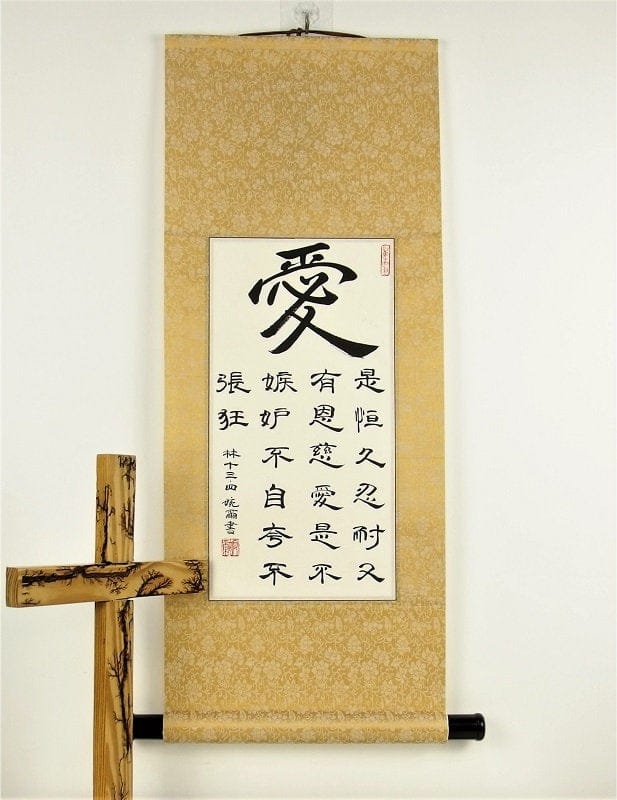 愛
是恒久忍耐又
有恩慈愛是不
嫉妒不自夸不
張狂
林十三·四 婉爾書